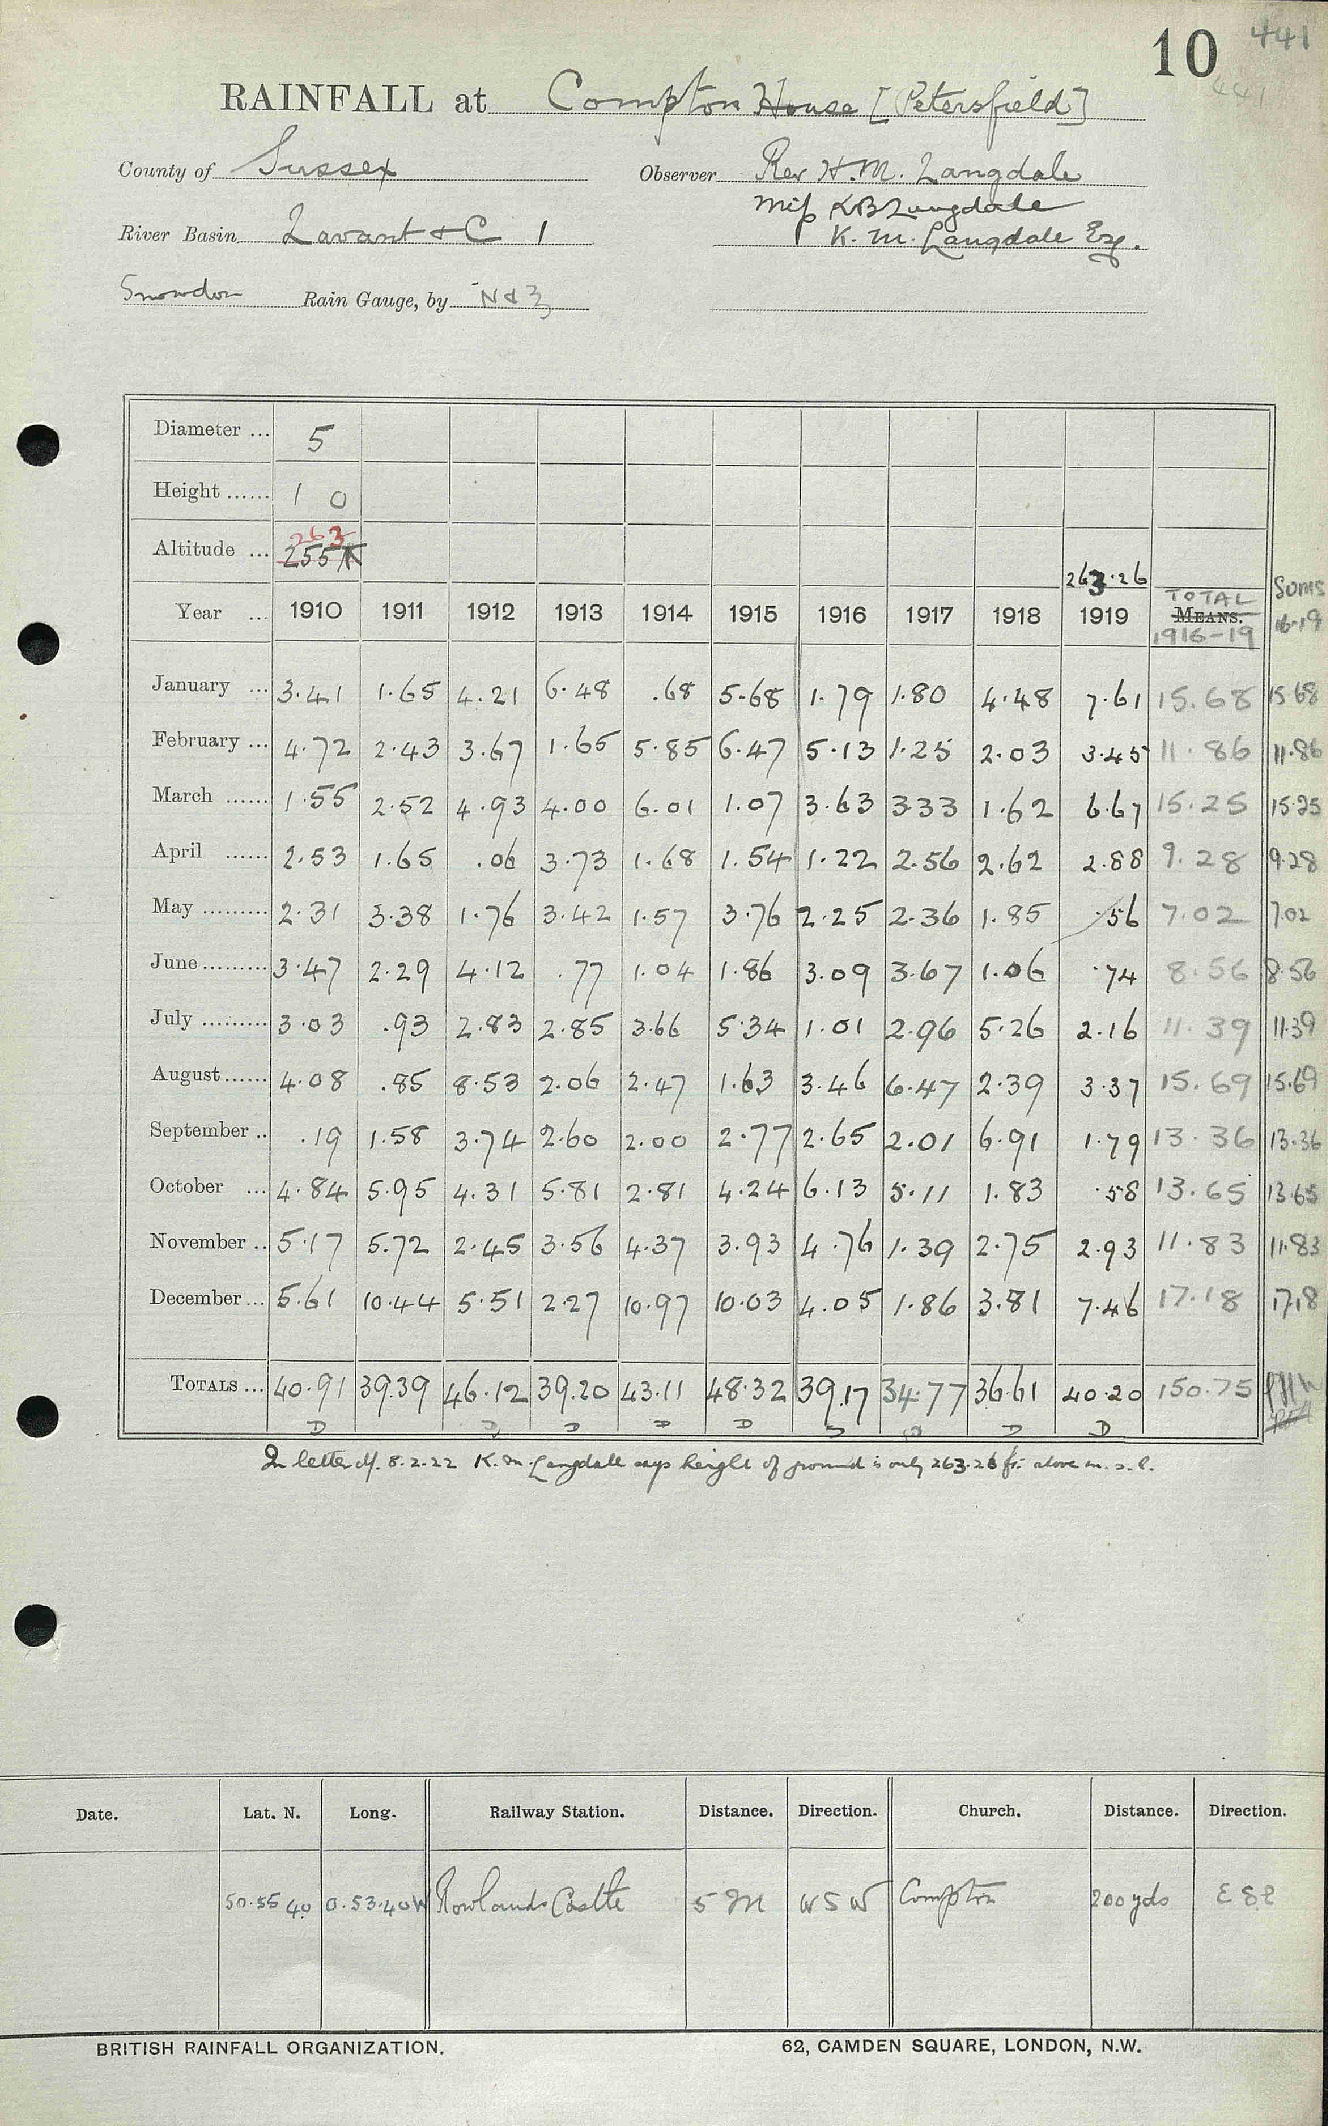 10 441
441
RAINFALL at Compton House [Petersfield]
County of Sussex Observer Rev H. M. Langdale
Miss K B Langdale
River Basin Lavant & C 1 K. M. Langdale Esq.
Snowdon Rain Gauge, by N & Z
Diameter ... 5
Height ...... 1 0
Altitude ... 263 255
263.26
Year ... 1910 1911 1912 1913 1914 1915 1916 1917 1918 1919 TOTAL MEANS. 1916-19 Sums 16-19
January ... 3.41 1.65 4.21 6.48 .68 5.68 1.79 1.80 4.48 7.61 15.68 15 68
February ... 4.72 2.43 3.67 1.65 5.85 6.47 5.13 1.25 2.03 3.45 11.86 11.86
March ...... 1.55 2.52 4.93 4.00 6.01 1.07 3.63 3.33 1.62 6.67 15.25 15.25
April ...... 2.53 1.65 .06 3.73 1.68 1.54 1.22 2.56 2.62 2.88 9.28 9.28
May ......... 2.31 3.38 1.76 3.42 1.57 3.76 2.25 2.36 1.85 .56 7.02 7.02
June ......... 3.47 2.29 4.12 .77 1.04 1.86 3.09 3.67 1.06 .74 8.56 8.56
July ......... 3.03 .93 2.83 2.85 3.66 5.34 1.01 2.96 5.26 2.16 11.39 11.39
August ...... 4.08 .85 8.53 2.06 2.47 1.63 3.46 6.47 2.39 3.37 15.69 15.69
September .. .19 1.58 3.74 2.60 2.00 2.77 2.65 2.01 6.91 1.79 13.36 13.36
October ... 4.84 5.95 4.31 5.81 2.81 4.24 6.13 5.11 1.83 .58 13.65 13.65
November .. 5.17 5.72 2.45 3.56 4.37 3.93 4.76 1.39 2.75 2.93 11.83 11.83
December ... 5.61 10.44 5.51 2.27 10.97 10.03 4.05 1.86 3.81 7.46 17.18 17.18
TOTALS ... 40.91 39.39 46.12 39.20 43.11 48.32 39.17 34.77 36.61 40.20 150.75
D D D D D D D D
In letter of 8.2.22 K. M. Langdale says height of ground is only 263.26 ft. above m.s.l.
Date. Lat. N. Long. Railway Station. Distance. Direction. Church. Distance. Direction.
50.55 40 0.53.40W Rowlands Castle 5 M W S W Compton 200 yds E S E
BRITISH RAINFALL ORGANIZATION. 62, CAMDEN SQUARE, LONDON, N.W.